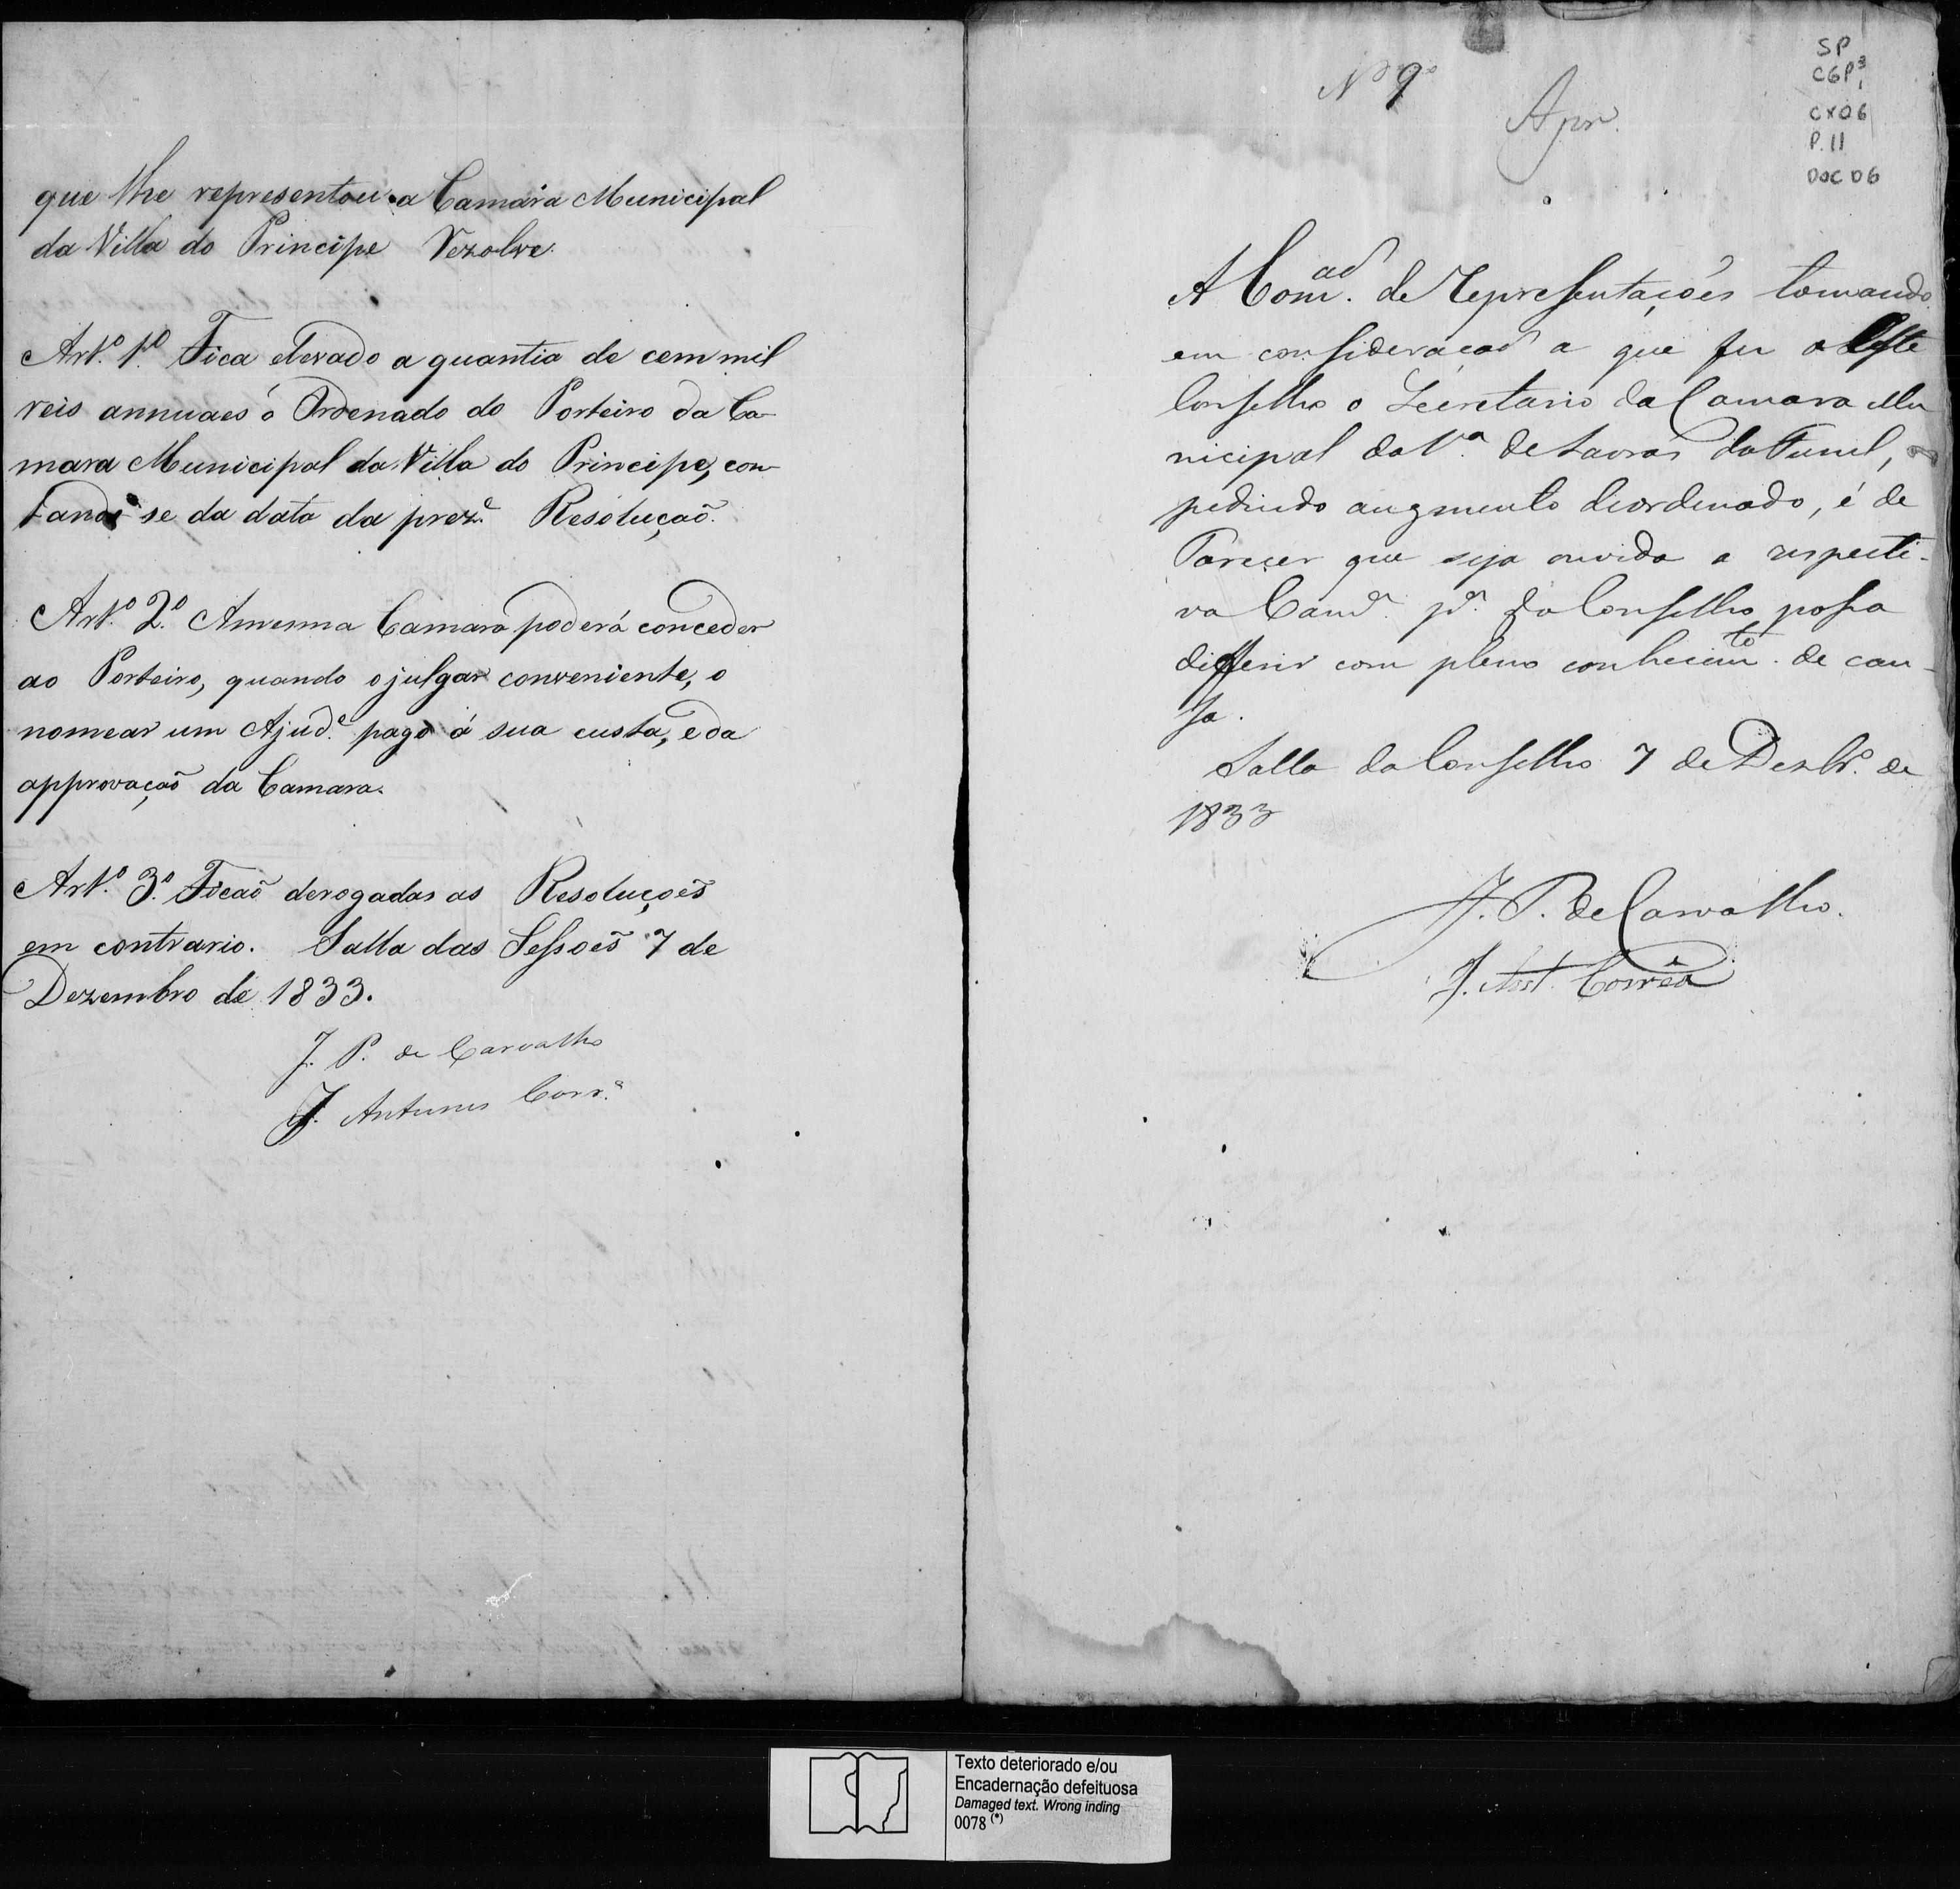 que lhe representou a Camara Municipal
da Villa do Principe Rezolve.
Art.º 1.º Fica elevado a quantia de cem mil
reis annuaes ó Ordenado do Porteiro da Ca-
mara Municipal da Villa do Principe, con-
tando se da data da prez.e Resoluçaõ.
Art.º 2.º Amesma Camara poderá conceder
ao Porteiro, quando o julgar conveniente, o
nomear um Ajud.e pago á sua custa, e da
approvaçaõ da Camara.
Art.º 3.º Ficaõ derogadas as Resoluçoẽs
em contrario. Salla das Sessoẽs 7 de
Dezembro de 1833.
J. P. de Carvalho
J. Antunes Corr.ª
Nº 9º
Apr.
SP
CGP³1
CX06
P.11
DOC 06
A Com.ad de Representaçoẽs tomando
em consideraçaõ a que fez a este
Conselho o Secretario da Camara Mu
nicipal da V.ª de Lavras do Funil,
pedindo augmento deordenado, é de
Parecer que seja ouvida a respecti-
va Cam.ª p.ª q o Conselho possa
differir com pleno conhecim.to de cau-
sa.
Salla do Conselho 7 de Dezbr.º de
1833
J. P. de Carvalho.
J. Ant. Corrêa
Texto deteriorado e/ou
Encadernação defeituosa
Damaged text. Wrong inding
0078 (*)